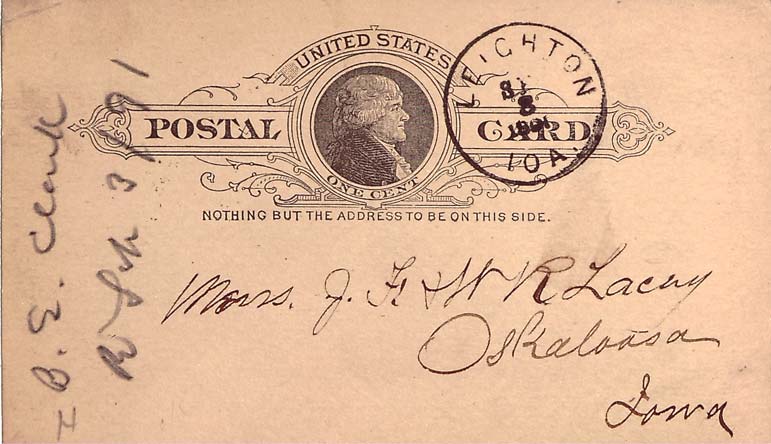 UNITED STATES
POSTAL CARD
ONE CENT
NOTHING BUT THE ADDRESS TO BE ON THIS SIDE.
LEIGHTON
8
IOA.
Messrs. J. F. & W R Lacey
Oskaloosa
Iowa
B. E. Clark
3/91